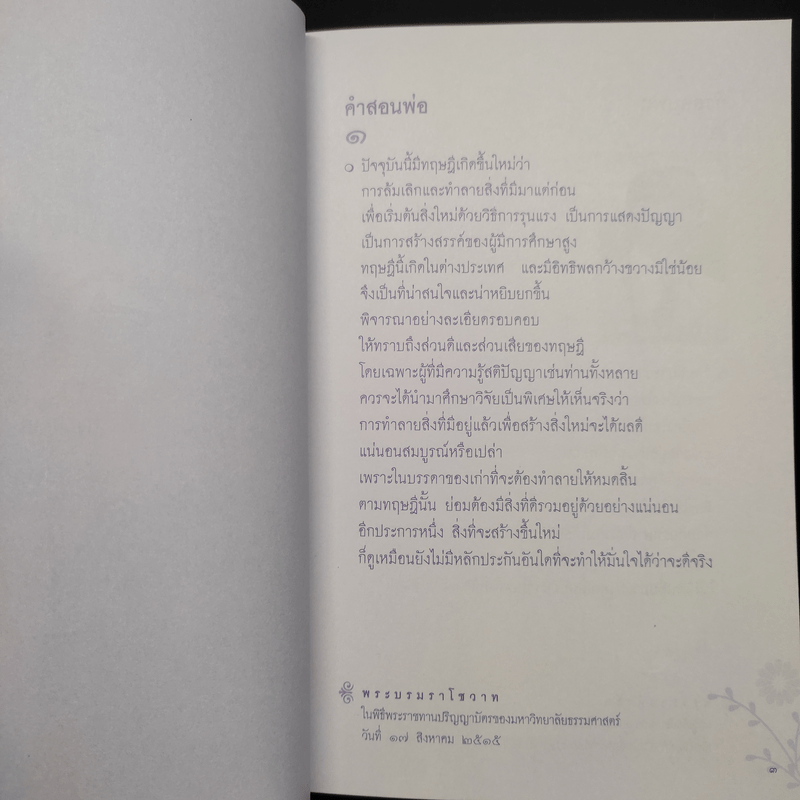 คำสอนพ่อ
๑
๐ ปัจจุบันนี้มีทฤษฎีเกิดขึ้นใหม่ว่า
การล้มเลิกและทำลายสิ่งที่มีมาแต่ก่อน
เพื่อเริ่มต้นสิ่งใหม่ด้วยวิธีการรุนแรง เป็นการแสดงปัญญา
เป็นการสร้างสรรค์ของผู้มีการศึกษาสูง
ทฤษฎีนี้เกิดในต่างประเทศ และมีอิทธิพลกว้างขวางมิใช่น้อย
จึงเป็นที่น่าสนใจและน่าหยิบยกขึ้น
พิจารณาอย่างละเอียดรอบคอบ
ให้ทราบถึงส่วนดีและส่วนเสียของทฤษฎี
โดยเฉพาะผู้ที่มีความรู้สติปัญญาเช่นท่านทั้งหลาย
ควรจะได้นำมาศึกษาวิจัยเป็นพิเศษให้เห็นจริงว่า
การทำลายสิ่งที่มีอยู่แล้วเพื่อสร้างสิ่งใหม่จะได้ผลดี
แน่นอนสมบูรณ์หรือเปล่า
เพราะในบรรดาของเก่าที่จะต้องทำลายให้หมดสิ้น
ตามทฤษฎีนั้น ย่อมต้องมีสิ่งที่ดีรวมอยู่ด้วยอย่างแน่นอน
อีกประการหนึ่ง สิ่งที่จะสร้างขึ้นใหม่
ก็ดูเหมือนยังไม่มีหลักประกันอันใดที่จะทำให้มั่นใจได้ว่าจะดีจริง
พระบรมราโชวาท
ในพิธีพระราชทานปริญญาบัตรของมหาวิทยาลัยธรรมศาสตร์
วันที่ ๑๗ สิงหาคม ๒๕๑๕
๓